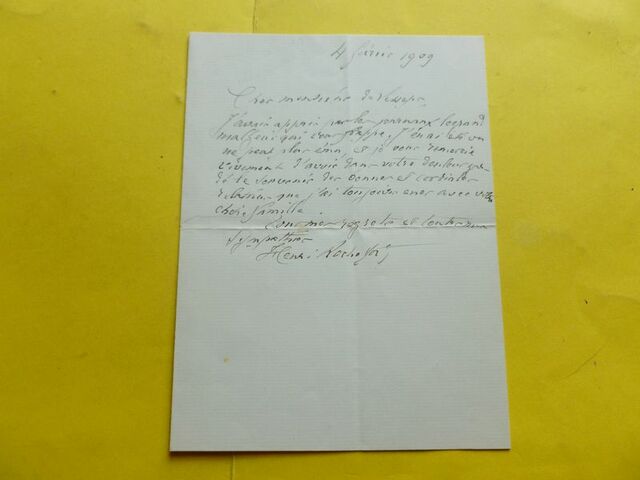 4 février 1909
Cher monsieur de Lesseps,
J'avais appris par les journaux le grand
malheur qui vous frappe. J'en ai été on
ne peut plus ému, et je vous remercie
vivement d'avoir dans votre douleur
le souvenir des bonnes et cordiales
relations que j'ai toujours eues avec votre
chère famille
Tous mes regrets et toutes mes
sympathies
Henri Rochefort